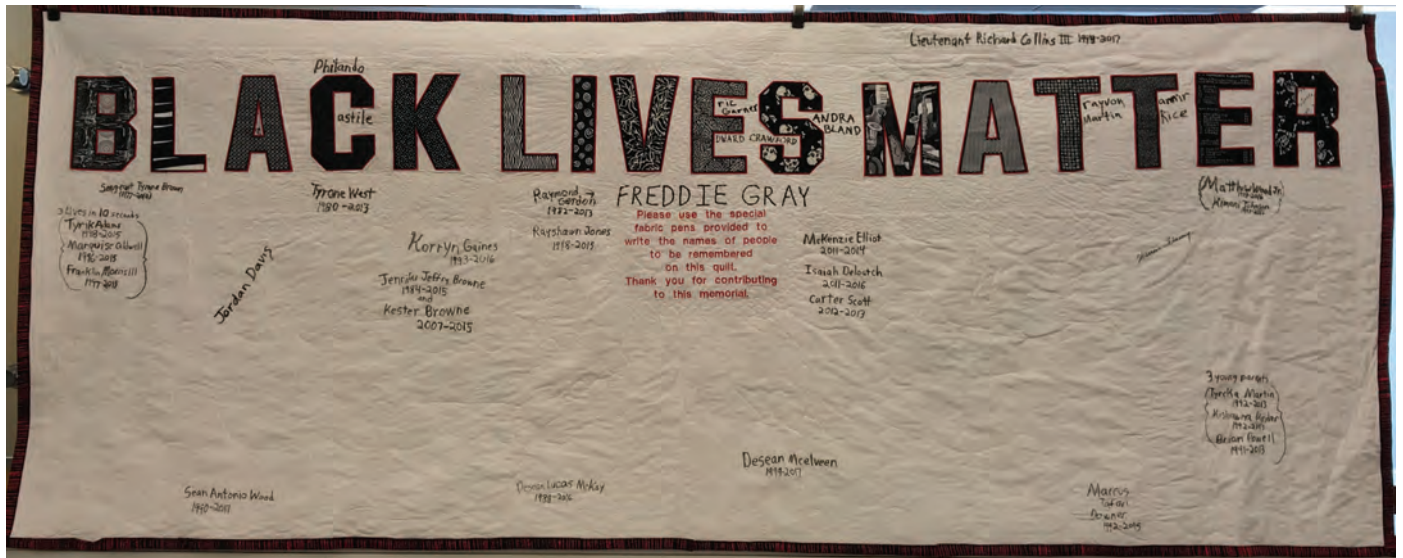 Lieutenant Richard Collins III 1998-2017
BLACK LIVES MATTER
Philando
astile
ric
Garner
DWARD CRAWFORD
ANDRA
BLAND
rayvon
Martin
amir
Rice
Sergeant Tyrone Brown
3 lives in 10 seconds
Tyrik Adams
1998-2015
Marquise Caldwell
1986-2015
Franklin Morris III
Tyrone West
1980-2013
Jordan Davis
Korryn Gaines
1993-2016
Jennifer Jeffrey Browne
1984-2015
and
Kester Browne
2007-2015
Raymond
Gordon
1982-2013
Rayshawn Jones
1998-2015
FREDDIE GRAY
Please use the special
fabric pens provided to
write the names of people
to be remembered
on this quilt.
Thank you for contributing
to this memorial.
McKenzie Elliot
2011-2014
Isaiah Deloatch
2011-2016
Carter Scott
2012-2013
3 young parents
Tyreka Martin
1992-2013
1992-2013
Brian Powell
1991-2013
Desean Mcelveen
1999-2017
Sean Antonio Wood
1990-2011
Desean Lucas McKay
1998-2016
Marcus
Tafari
Downer
1992-2015